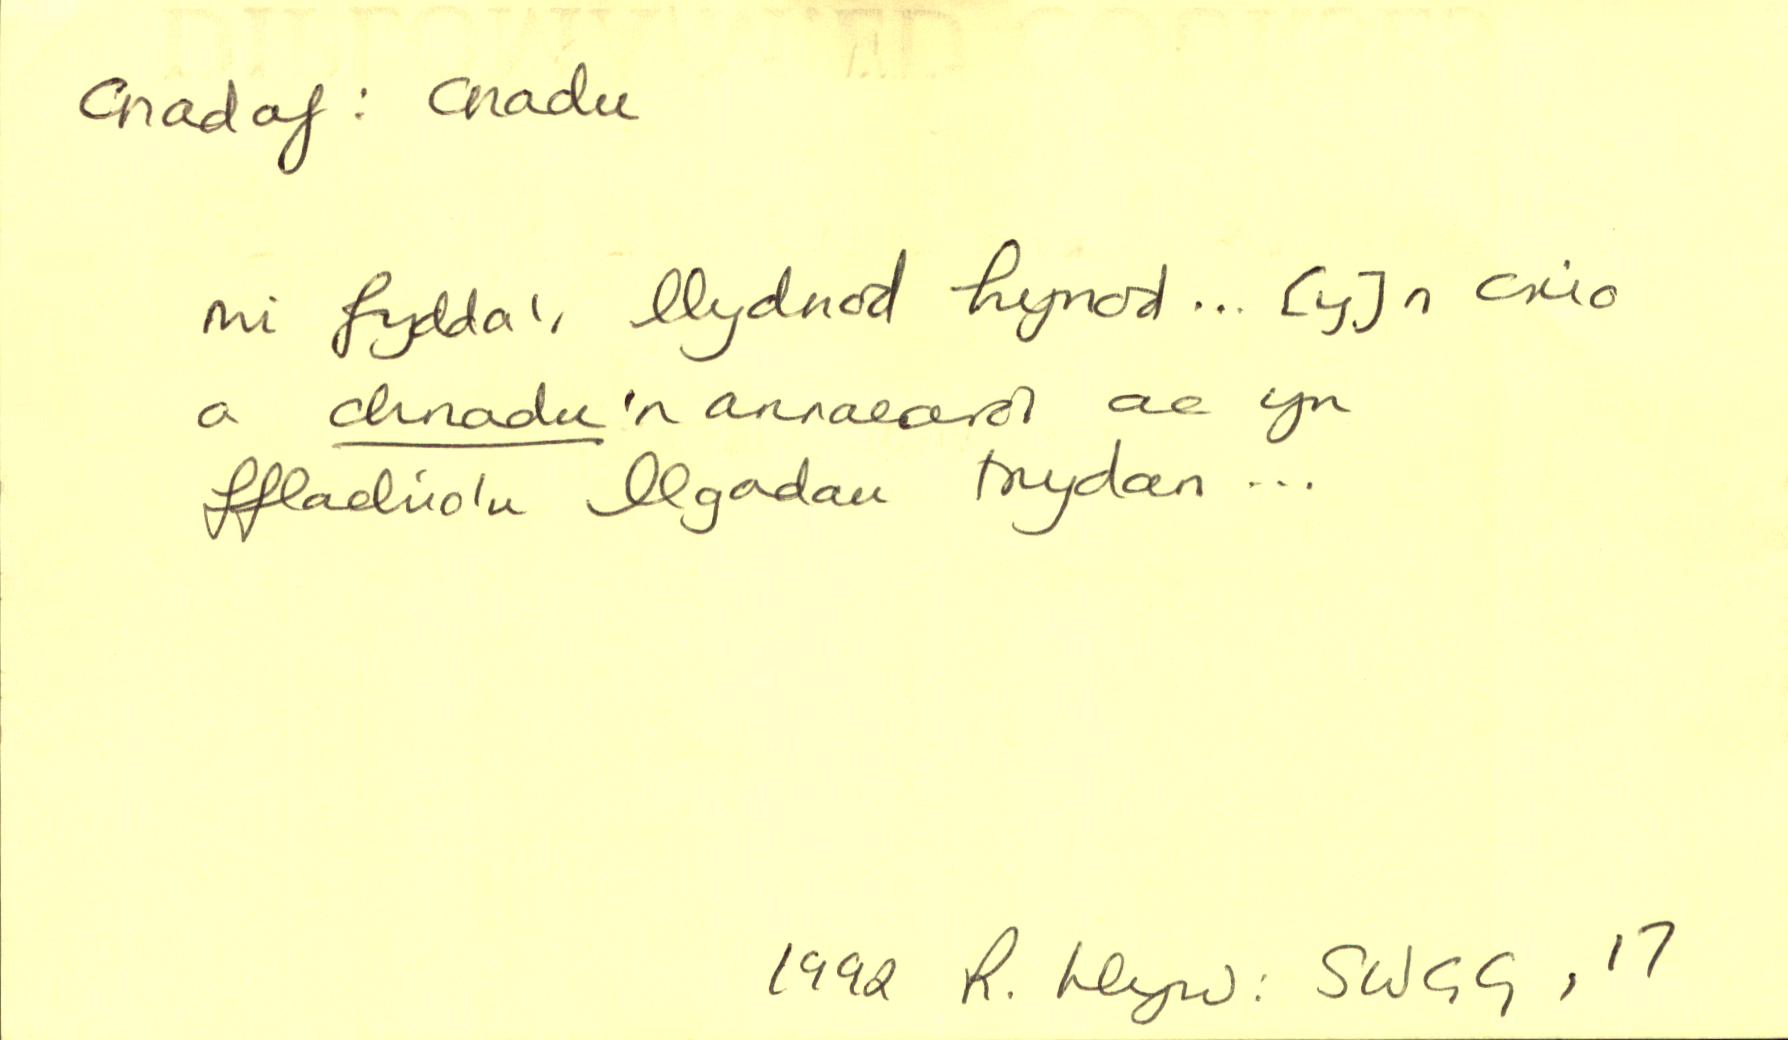 cnadaf: cnadu
mi fydda'r llydnod hynod... [y]n crio
a chnadu'n annaearol ac yn
fflachio'u llgadau trydan...
1992 R. Llyw: SWGG, 17